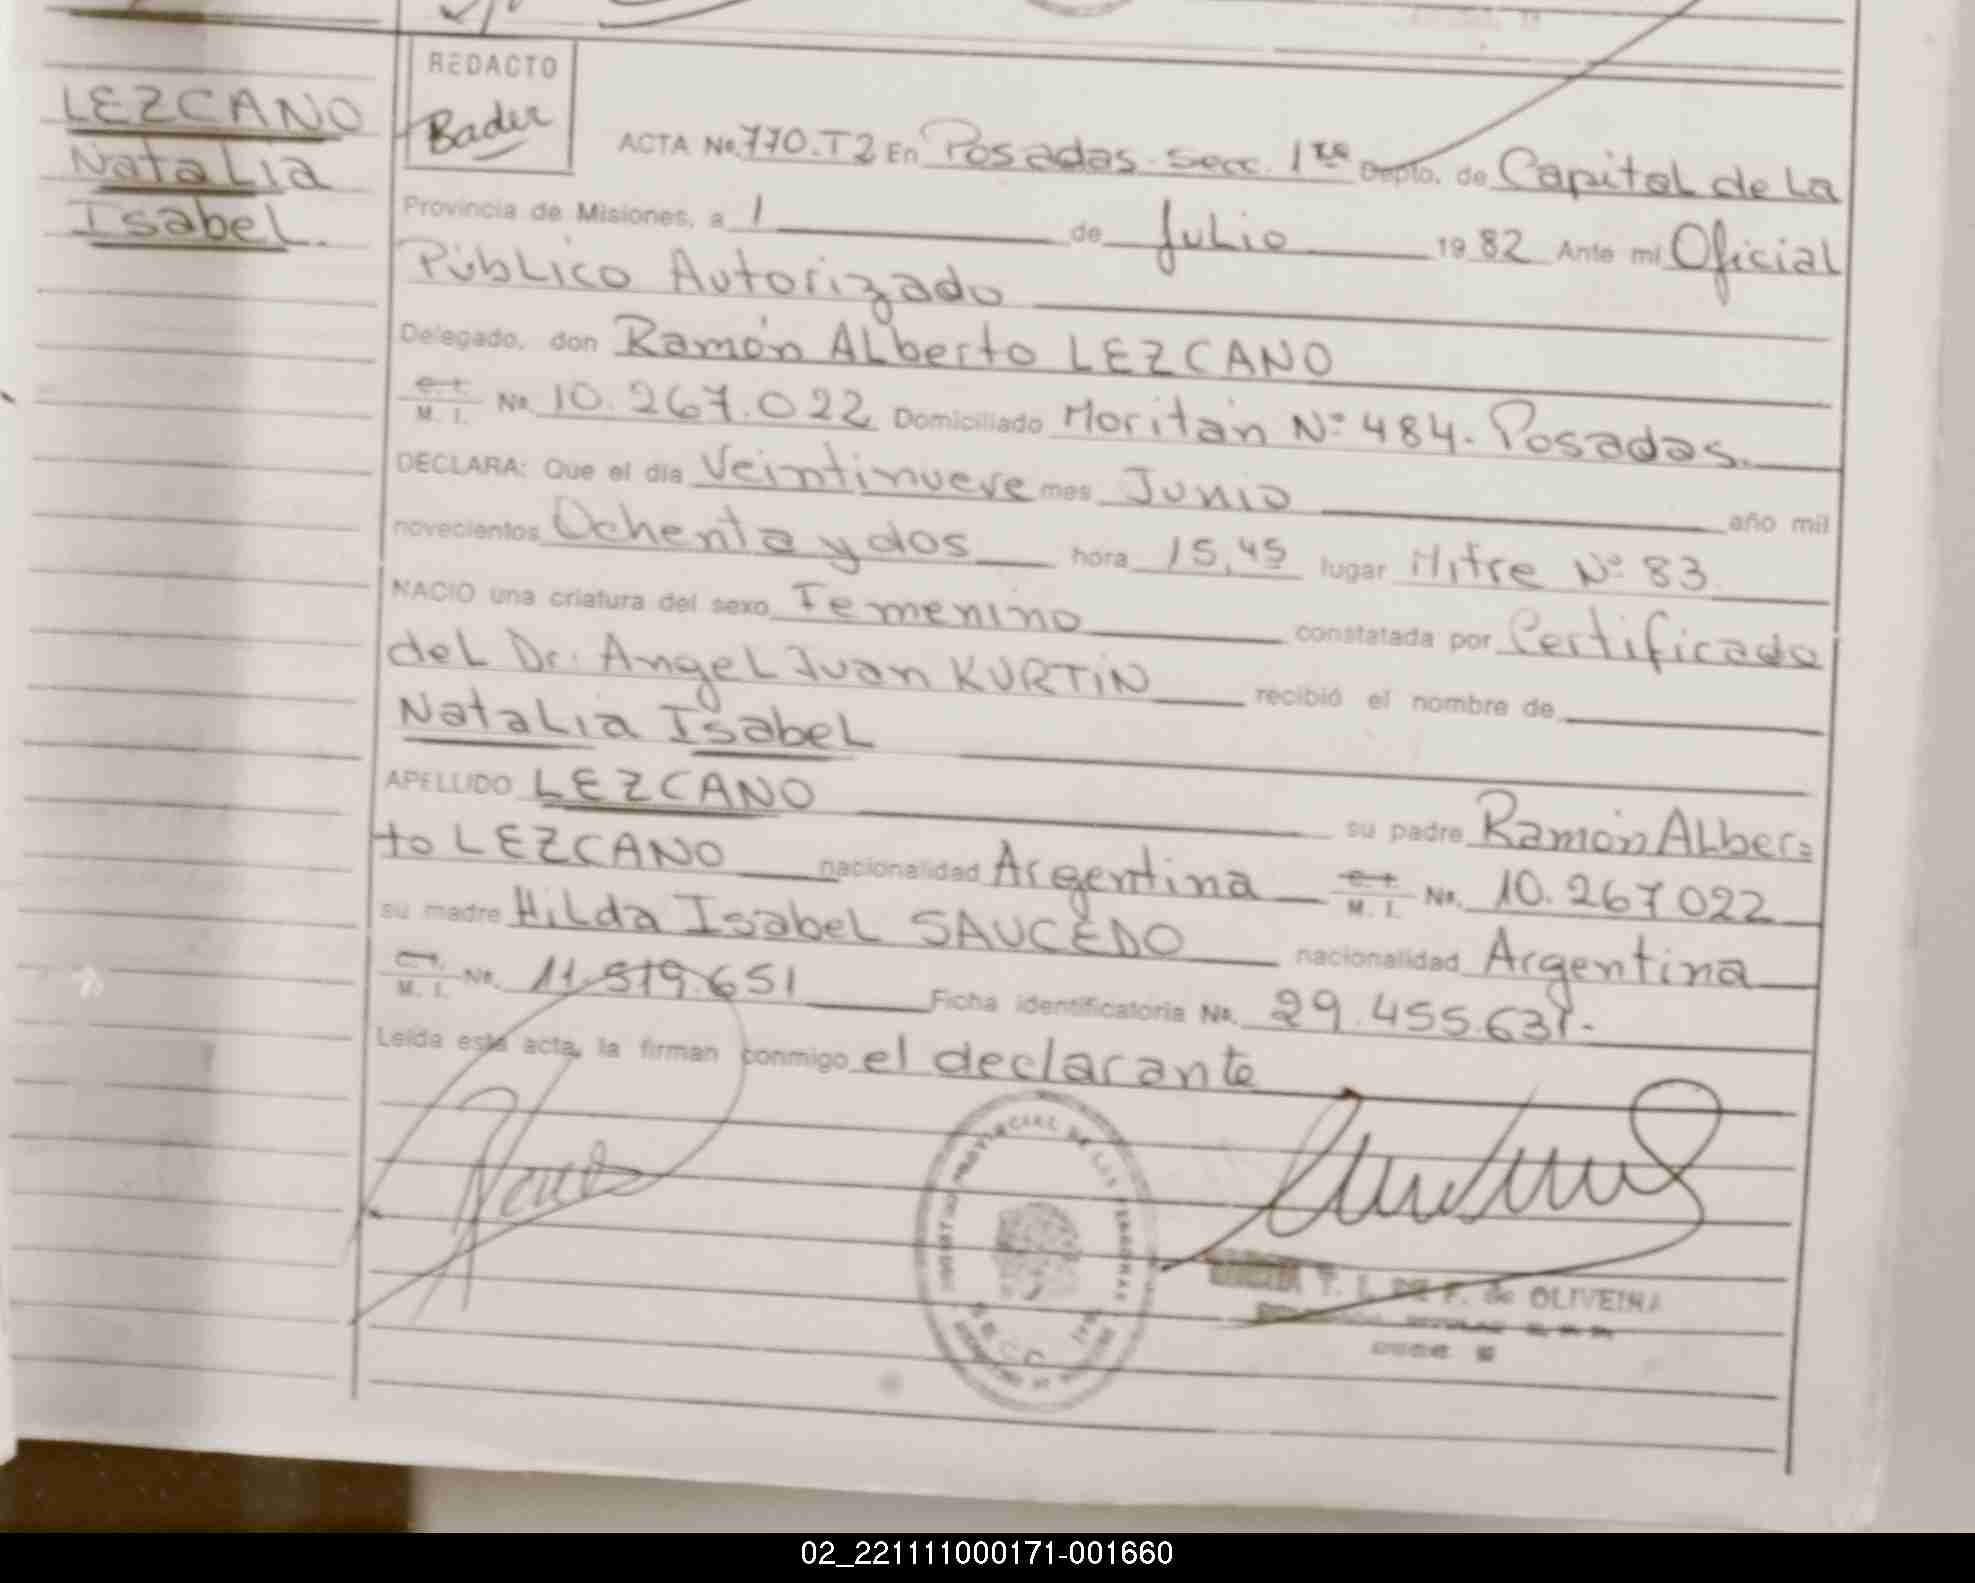 LEZCANO
Natalia
Isabel.
REDACTO
Bader
ACTA No. 770.T2 En Posadas. Secc. 1ra Depto. de Capital de La
Provincia de Misiones, a 1 de Julio 1982 Ante mi Oficial
Público Autorizado
Delegado, don Ramón Alberto LEZCANO
M. I. No. 10.267.022 Domiciliado Moritán Nº 484. Posadas.
DECLARA: Que el día Veintinueve mes Junio año mil
novecientos Ochenta y dos hora 15,45 lugar Mitre Nº 83
NACIO una criatura del sexo Femenino constatada por Certificado
del Dr. Angel Juan KURTIN recibió el nombre de
Natalia Isabel
APELLIDO LEZCANO su padre Ramón Alber=
to LEZCANO nacionalidad Argentina M. I. No. 10.267022
su madre Hilda Isabel SAUCEDO nacionalidad Argentina
M. I. No. 11.519.651 Ficha identificatoria No. 29.455.631.-
Leída esta acta, la firman conmigo el declarante
PROVINCIAL DE LAS PERSONAS
F. de OLIVEIRA
02_221111000171-001660